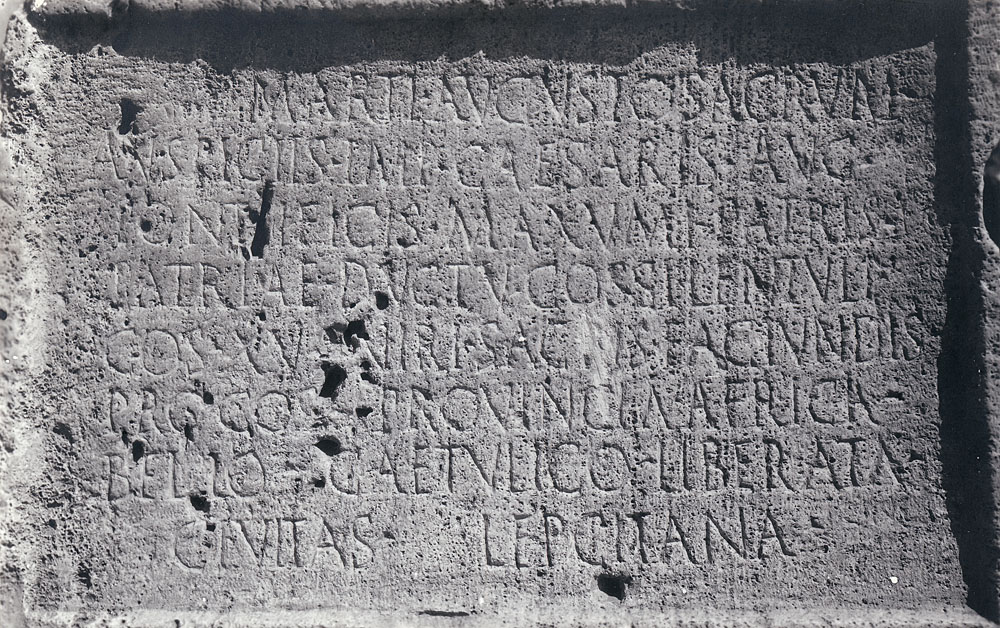 MARTI AVGVSTO SACRVM
AVSPICIIS IMP CAESARIS AVG
PONTIFICIS MAXVMI PATRIS
PATRIAE DVCTV COSSI LENTVLI
COS XV VIRI SACRIS FACIVNDIS
PRO COS PROVINCIA AFRICA
BELLO GAETVLICO LIBERATA
CIVITAS LEPCITANA